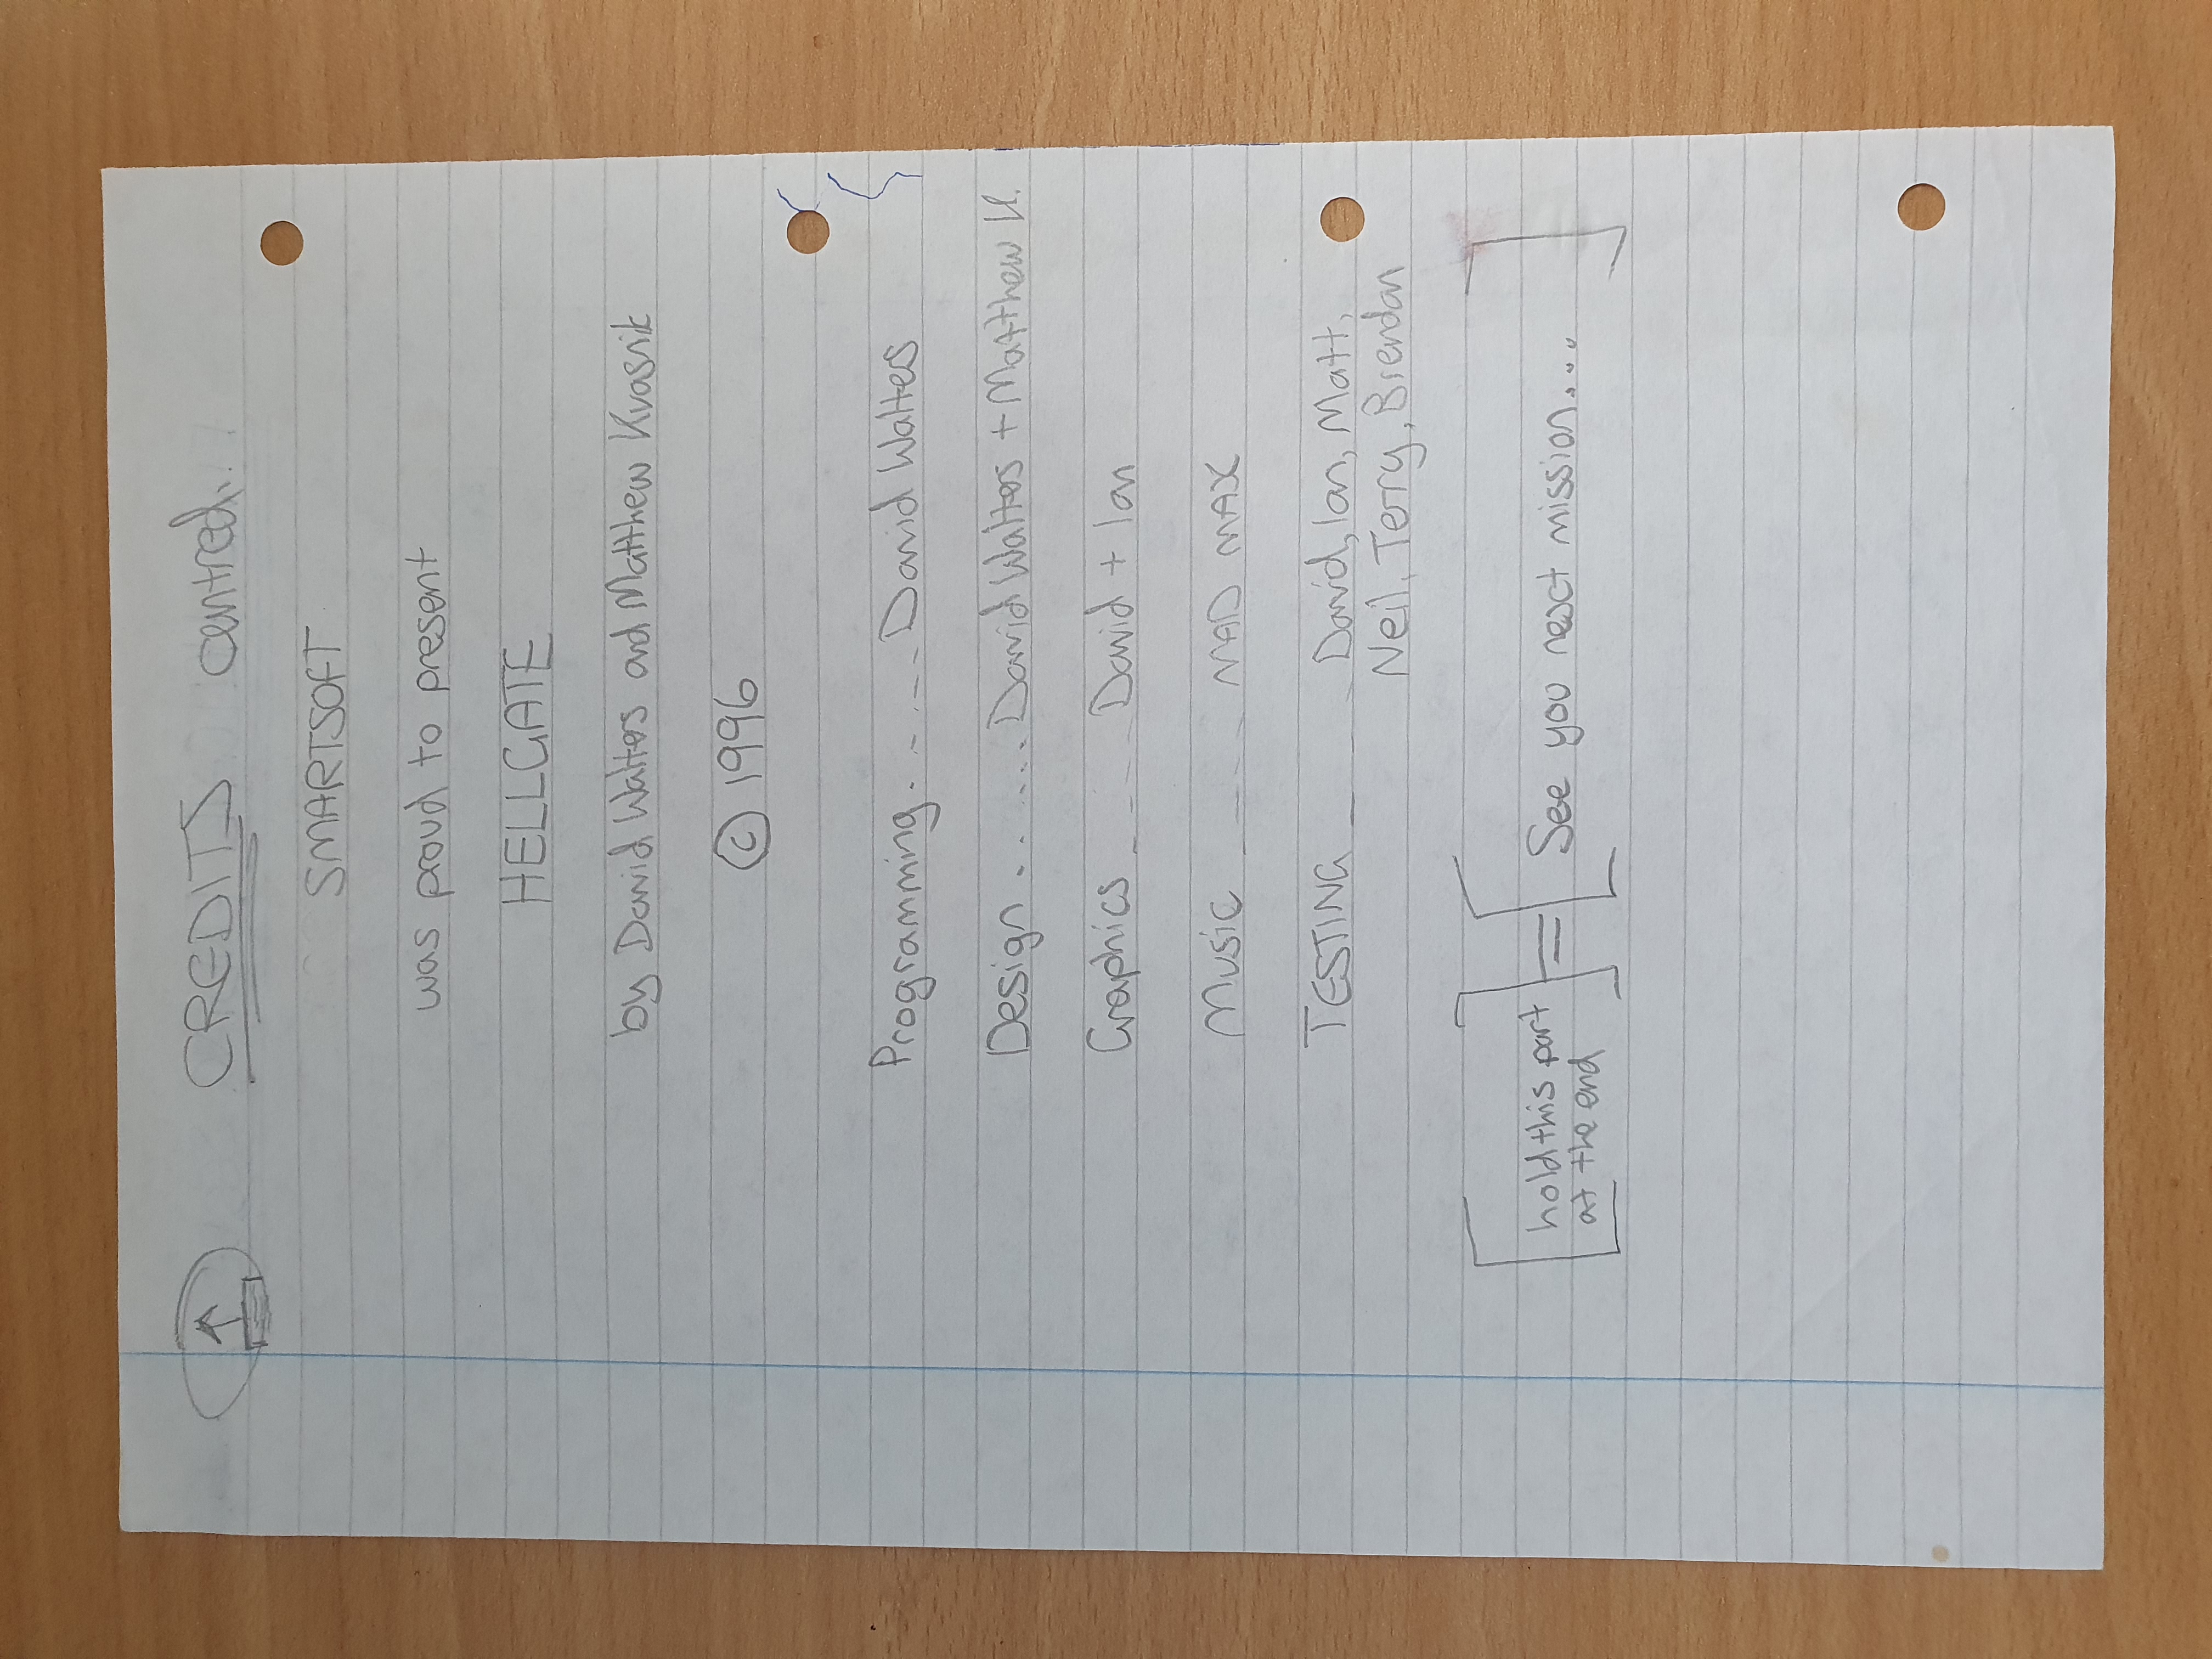 CREDITS centred.
SMARTSOFT
was proud to present
HELLGATE
by David Walters and Matthew Kvasnik
© 1996
Programming..... David Walters
Design...... David Walters + Matthew K.
Graphics .... David + Ian
Music .... MAD MAX
TESTING .... David, Ian, Matt,
Neil, Terry, Brendan
[hold this part at the end] = [See you next mission....]